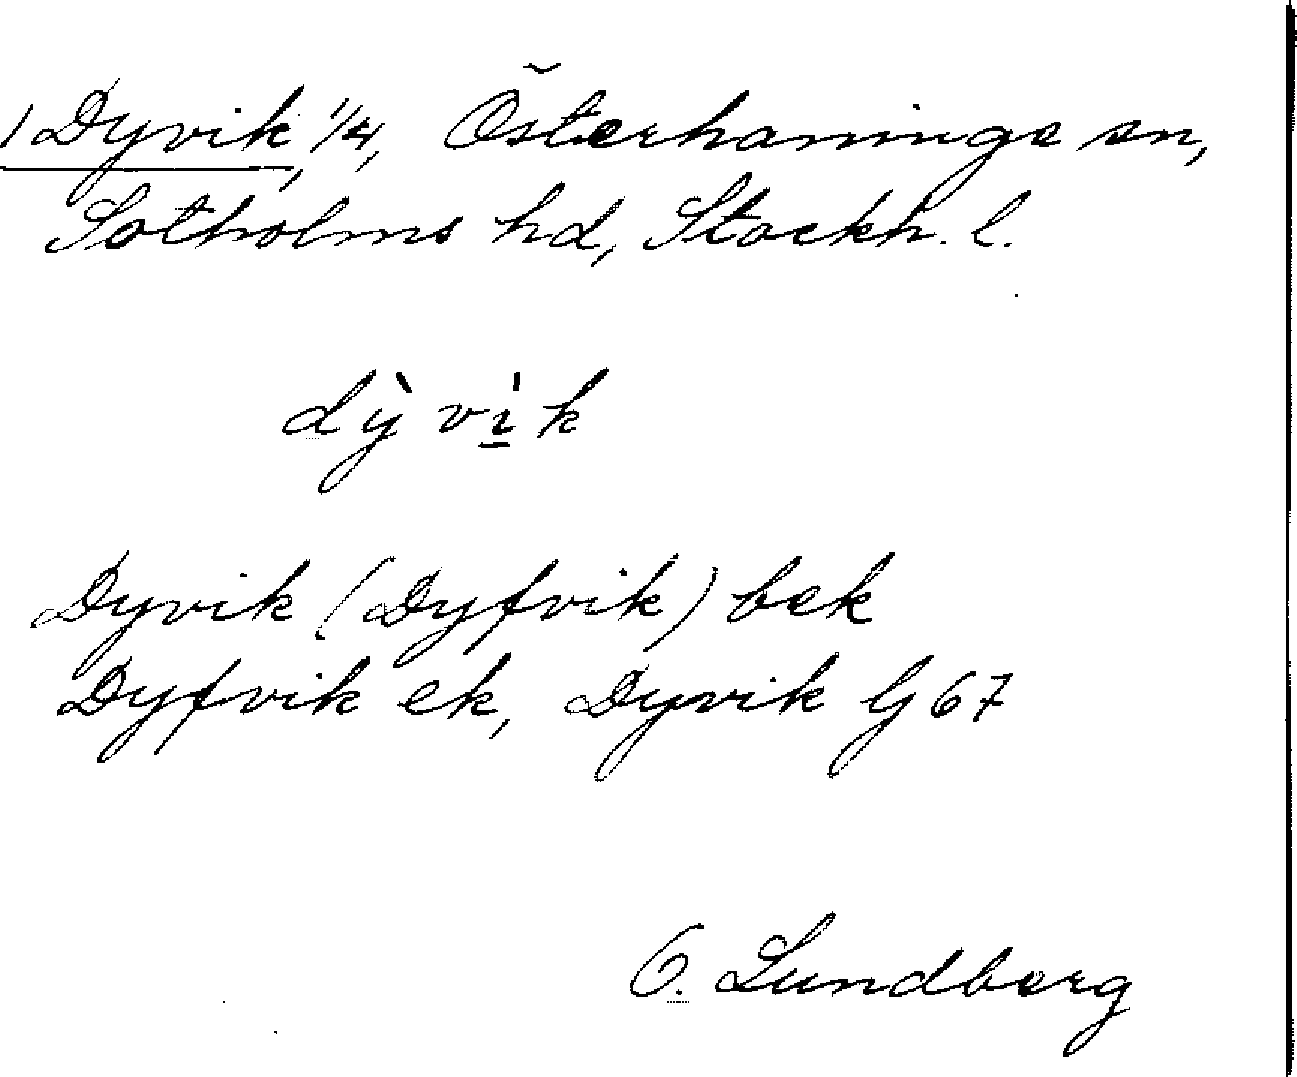 1 Dyvik, 1/4, Österhaninge sn,
Sotholms hd, Stockh. l.
dỳvìk
Dyvik (Dyfvik) bek
Dyfvik ek, Dyvik G 67
O. Lundberg